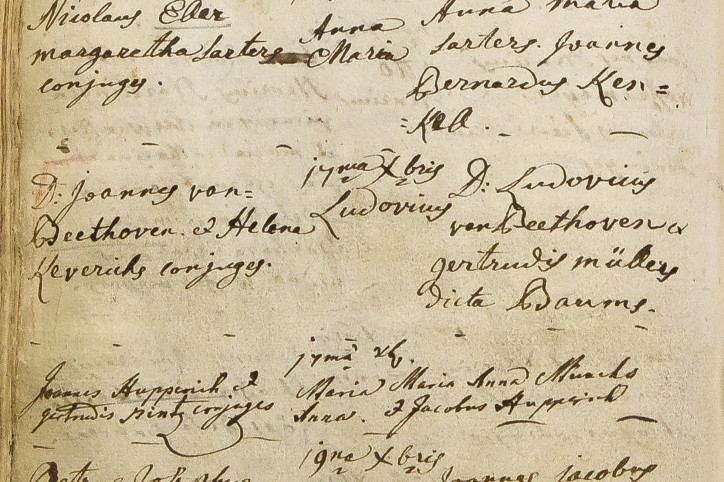 Nicolaus Eber
margaretha Sarters
conjuges.
Anna
Maria
Anna maria
Sarters. Joannes
Bernardus Ken=
=Kell.
17ma Xbris
D: Joannes van=
Beethoven. et Helena
Keverichs conjuges.
Ludovicus
D: Ludovicus
van Beethoven &
gertrudis müllers
dicta Baums.
17ma
Joannes Hupperich et
gertrudis conjuges
Maria
Anna.
Maria Anna
et Jacobus Hupperich
19na Xbris
Joannes jacobus